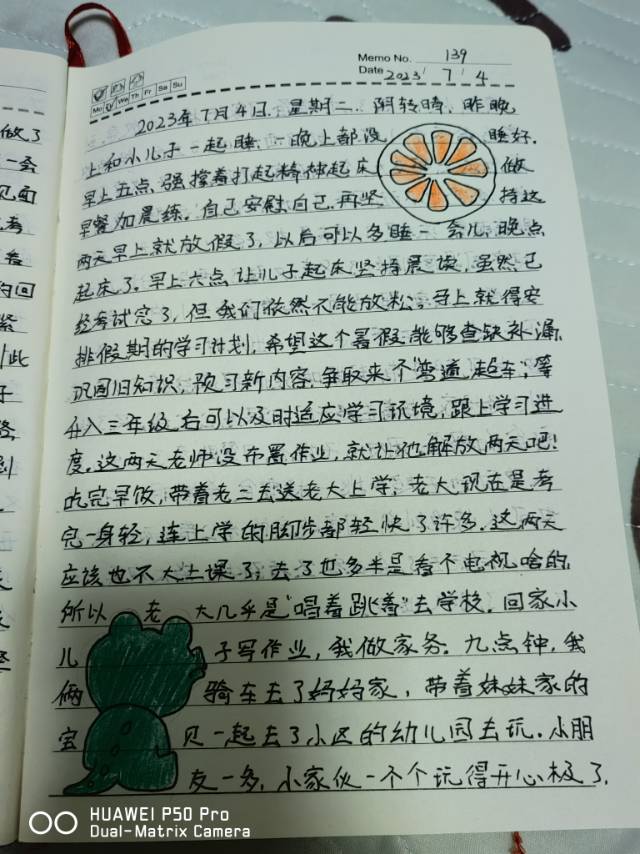 Memo No. 139
Date 2023 / 7 / 4
Mo Tu We Th Fr Sa Su
2023年7月4日. 星期二. 阴转晴, 昨晚
上和小儿子一起睡, 一晚上都没 睡好.
早上五点, 强撑着打起精神起床 做
早餐加晨练. 自己安慰自己, 再坚 持这
两天早上就放假了, 以后可以多睡一会儿, 晚点
起床了. 早上六点让儿子起床坚持晨读, 虽然已
经考试完了, 但我们依然不能放松. 马上就得安
排假期的学习计划, 希望这个暑假能够查缺补漏,
巩固旧知识, 预习新内容, 争取来个"弯道超车", 等
升入三年级后可以及时适应学习环境, 跟上学习进
度. 这两天老师没布置作业, 就让他解放两天吧!
吃完早饭, 带着老二去送老大上学, 老大现在是考
完一身轻, 连上学的脚步都轻快了许多. 这两天
应该也不大上课了, 去了也多半是看个电视啥的,
所以 老大几乎是"唱着跳着"去学校. 回家小
儿 子写作业, 我做家务. 九点钟, 我
俩 骑车去了妈妈家, 带着妹妹家的
宝 贝一起去了小区的幼儿园去玩. 小朋
友一多, 小家伙一个个玩得开心极了.
做了
一会
见面
考
看
的回
紧
此
子
路
到
HUAWEI P50 Pro
Dual-Matrix Camera